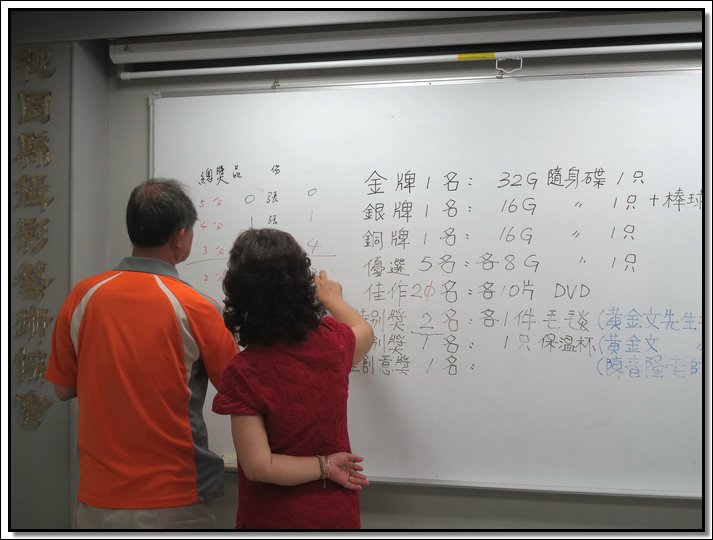 桃園縣攝影藝術協會
總獎品 份
5分 0張 0
4分 1張 1
3分 4
2分
金牌1名: 32G 隨身碟 1只
銀牌1名: 16G 〃 1只 + 棒球
銅牌1名: 16G 〃 1只
優選 5名: 各8G 〃 1只
佳作20名: 各10片 DVD
別獎 2名: 各1件 毛毯 (黃金文先生
別獎 1名: 1只 保溫杯 (黃金文
創意獎 1名: (陳春隆老師